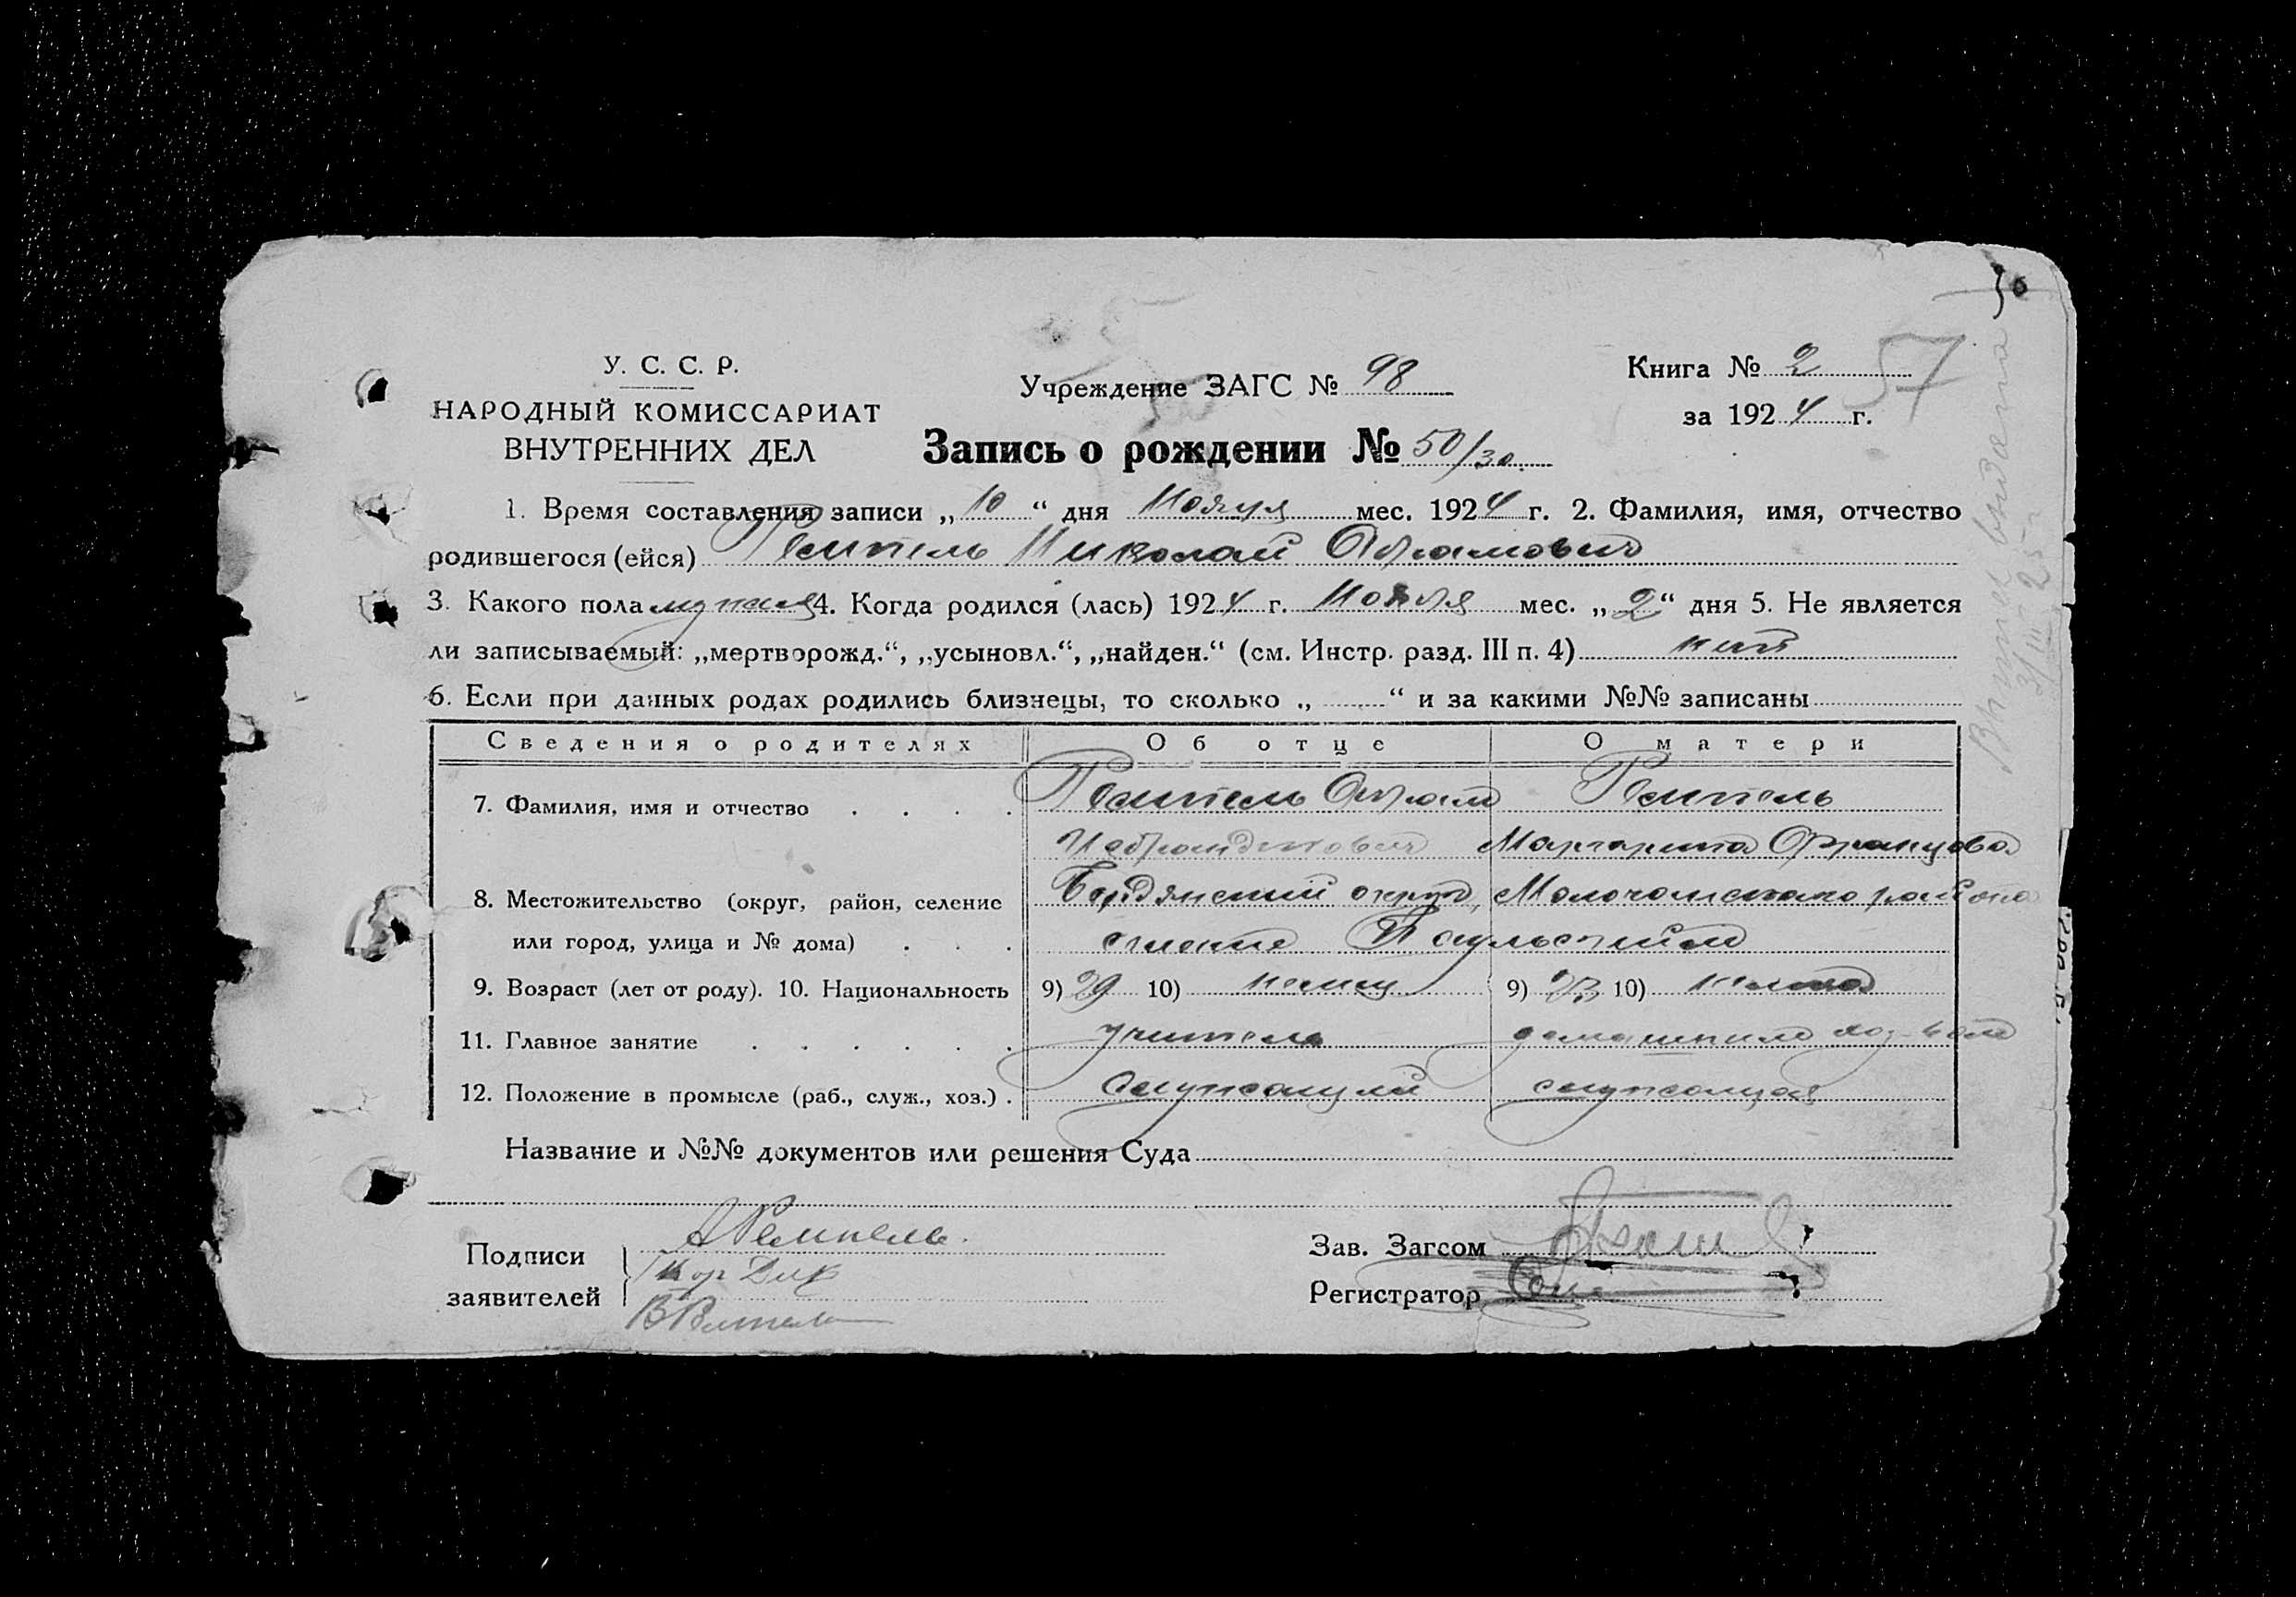 30
57
У. С. С. Р.
НАРОДНЫЙ КОМИССАРИАТ
ВНУТРЕННИХ ДЕЛ
Учреждение ЗАГС № 98
Книга № 2
за 1924 г.
Запись о рождении № 50/30.
1. Время составления записи „10“ дня Ноября мес. 1924 г. 2. Фамилия, имя, отчество
родившегося (ейся) Ремпель Николай Абрамович
3. Какого пола мужская 4. Когда родился (лась) 1924 г. Ноября мес. „2“ дня 5. Не является
ли записываемый: „мертворожд.“, „усыновл.“, „найден.“ (см. Инстр. разд. III п. 4) нет
6. Если при данных родах родились близнецы, то сколько „ “ и за какими №№ записаны
Сведения о родителях Об отце О матери
7. Фамилия, имя и отчество Ремпель Абрам Ремпель
Маргарита Францова
8. Местожительство (округ, район, селение Бердянский округ, Молочанского района
или город, улица и № дома) селение Паульсгейм
9. Возраст (лет от роду). 10. Национальность 9) 29 10) немец 9) 10) немка
11. Главное занятие учитель домашним хоз-вом
12. Положение в промысле (раб., служ., хоз.) служащий служащая
Название и №№ документов или решения Суда
Подписи заявителей АРемпель.
Кор Дик
Зав. Загсом
Регистратор
выдана
3/III 25 г